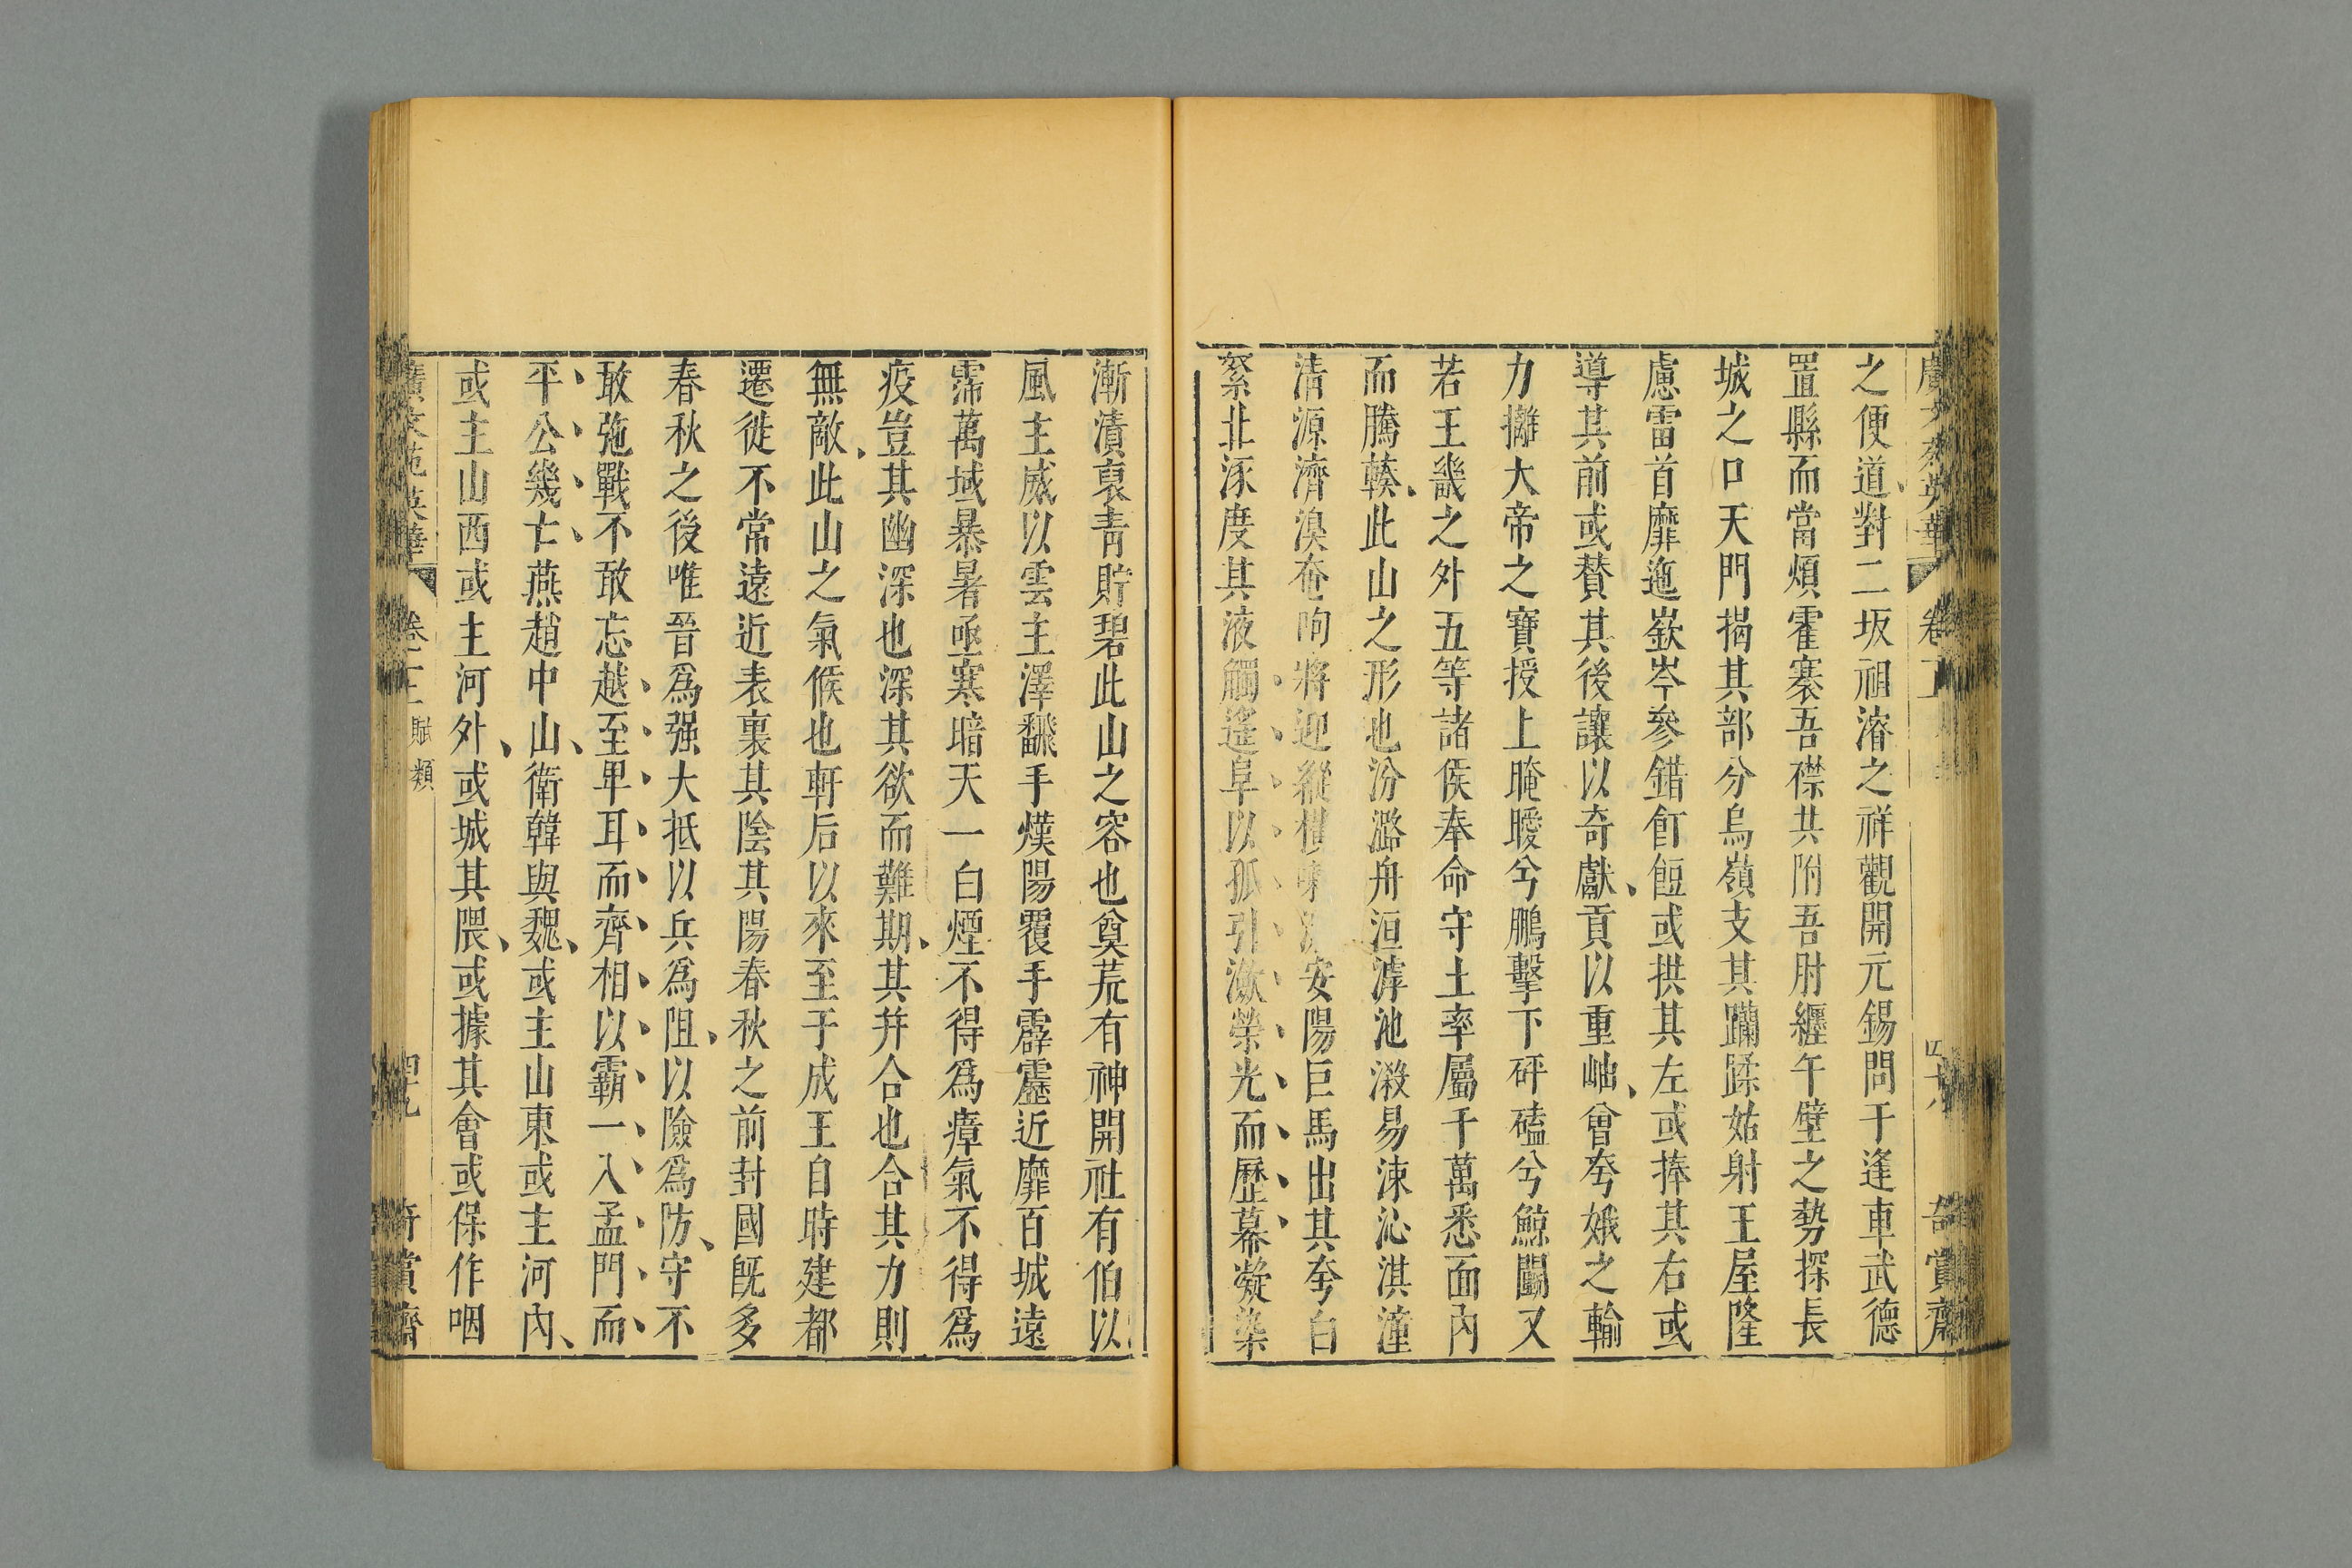 之便道對二坂祖濬之祥觀開元錫問于逢車武德
置縣而當煩霍寨吾襟共附吾肘纏午壁之勢探長
城之口天門揭其部分烏嶺支其躪蹂姑射王屋隆
慮雷首靡迤嶔岑參錯飣餖或拱其左或捧其右或
導其前或賛其後讓以奇獻貢以重岫曾夸娥之輸
力擲大帝之寶授上晻曖兮鵬擊下砰磕兮鯨鬭又
若王畿之外五等諸侯奉命守土率屬千萬悉面內
而騰轃此山之形也汾潞舟洹滹池漵易涑沁淇潼
淸源濟湨奄呴將迎縱安陽巨馬出其夸白
祭北涿度其液觸遙阜以孤引潋榮光而歷幕凝染
漸漬裒靑貯碧此山之容也奠荒有神開社有伯以
風主威以雲主澤飜手熯陽覆手霹靂近靡百城遠
霈萬域暴暑亟寒暗天一白煙不得爲瘴氣不得爲
疫豈其幽深也深其欲而難期其幷合也合其力則
無敵此山之氣候也軒后以來至于成王自時建都
遷徙不常遠近表裏其陰其陽春秋之前封國旣多
春秋之後唯晉爲强大抵以兵爲阻以險爲防守不
敢弛戰不敢忘越至畢耳而齊相以霸一入孟門而
平公幾亡燕趙中山衛韓與魏或主山東或主河內
或主山西或主河外或城其隈或據其會或保作咽
廣文苑英華 卷十二 賦類 四十九 奇賞齋